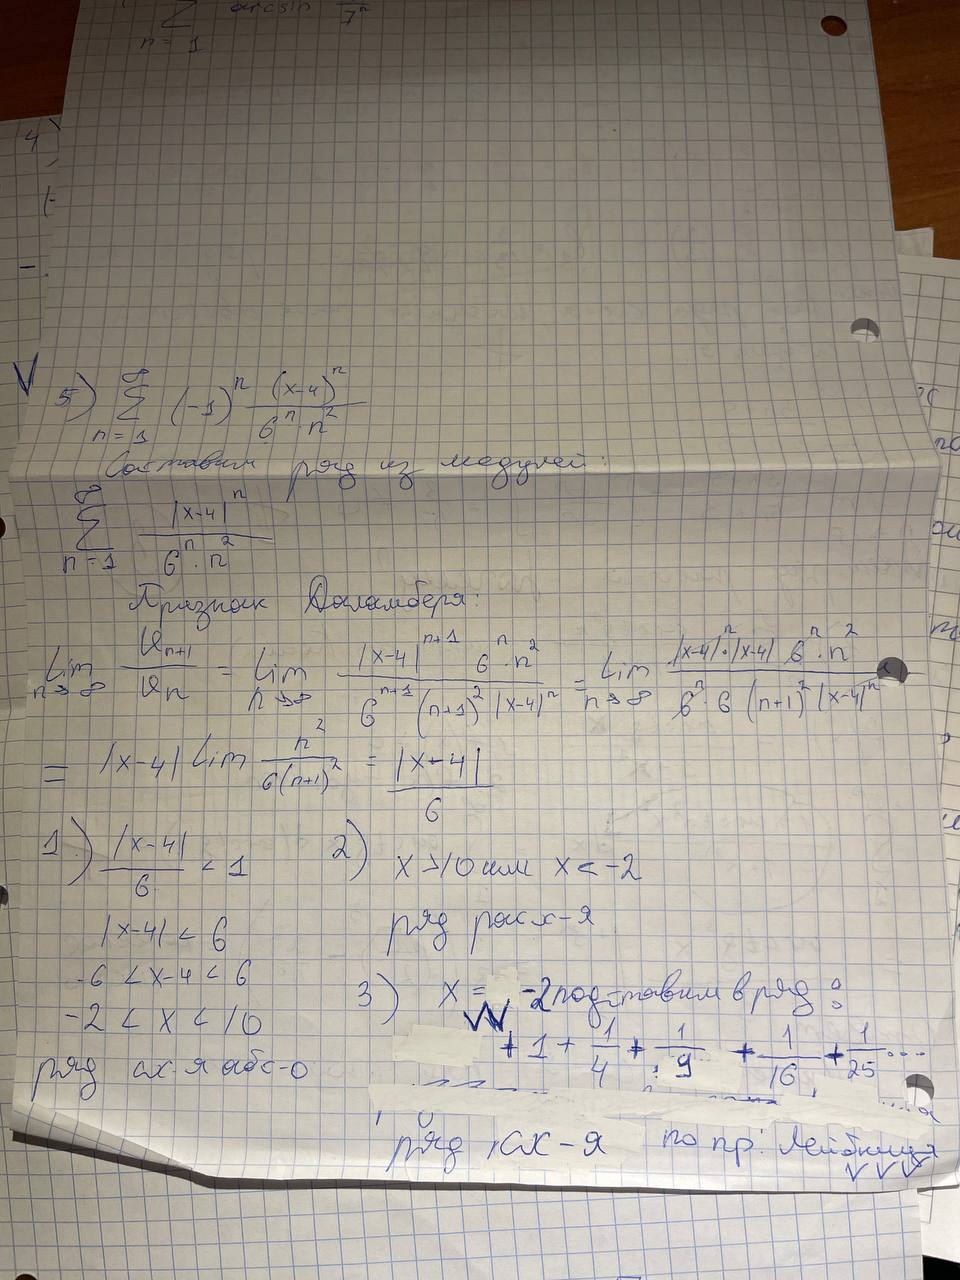 ∑ arcsin 7ⁿ
n = 1
4
5) ∞∑n=1 (-1)ⁿ (x-4)ⁿ / 6ⁿ · n²
Составим ряд из модулей:
∞∑n=1 |x-4|ⁿ / 6ⁿ · n²
Признак Даламбера:
Lim n→∞ Uₙ₊₁ / Uₙ = Lim n→∞ |x-4|ⁿ⁺¹ 6ⁿ · n² / 6ⁿ⁺¹ (n+1)² |x-4|ⁿ = Lim n→∞ |x-4|ⁿ · |x-4| 6ⁿ · n² / 6ⁿ · 6 (n+1)² |x-4|ⁿ =
= |x-4| Lim n² / 6(n+1)² = |x-4| / 6
1) |x-4| / 6 < 1
|x-4| < 6
-6 < x-4 < 6
-2 < x < 10
ряд сх-я абс-о
2) x > 10 или x < -2
ряд расх-я
3) x = -2 подставим в ряд:
+ 1 + 1/4 + 1/9 + 1/16 + 1/25 ...
ряд сх-я по пр. Лейбница